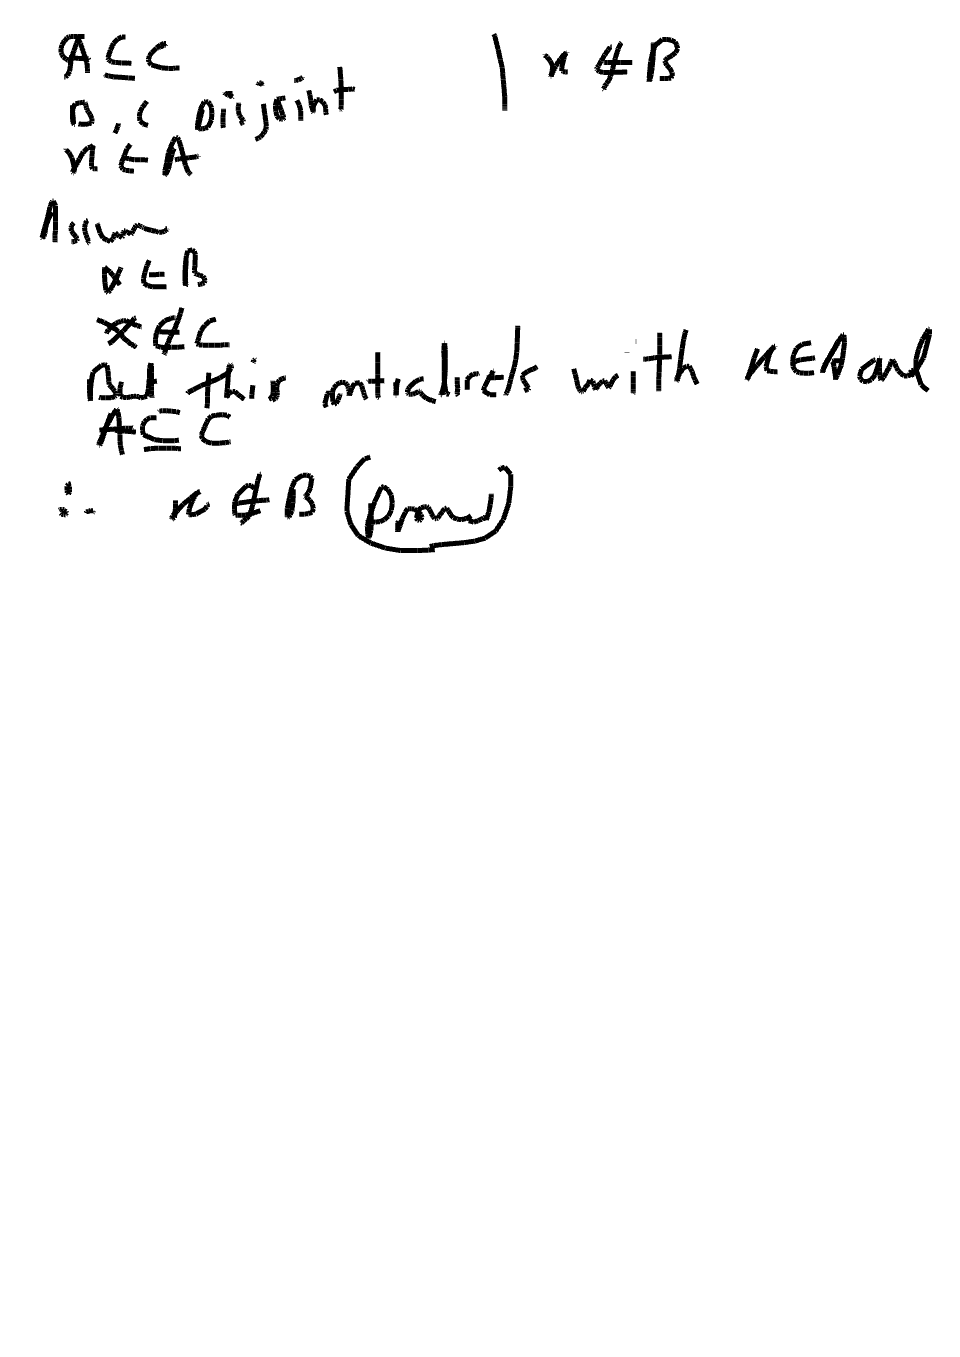 A ⊆ C | x ∉ B
B, C Disjoint
x ∈ A
Assum
x ∈ B
x ∉ C
But this contradicts with x ∈ A and
A ⊆ C
∴ x ∉ B (proved)